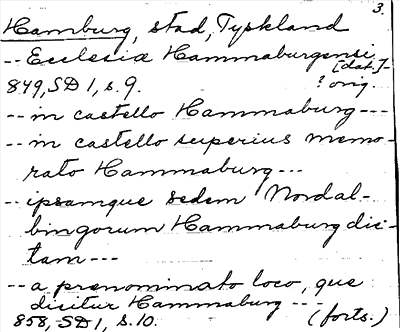 3.
Hamburg, stad, Tyskland
-- Ecclesiæ Hammaburgensi
[dat.]-
849, SD 1, s. 9. ? orig.
-- in castello Hammaburg ---
-- in castello superius memo-
rato Hammaburg ---
-- ipsamque sedem Nordal-
bingorum Hammaburg dic-
tam ---
-- a prenominato loco, que
dicitur Hammaburg ---
858, SD 1, s. 10. (forts.)